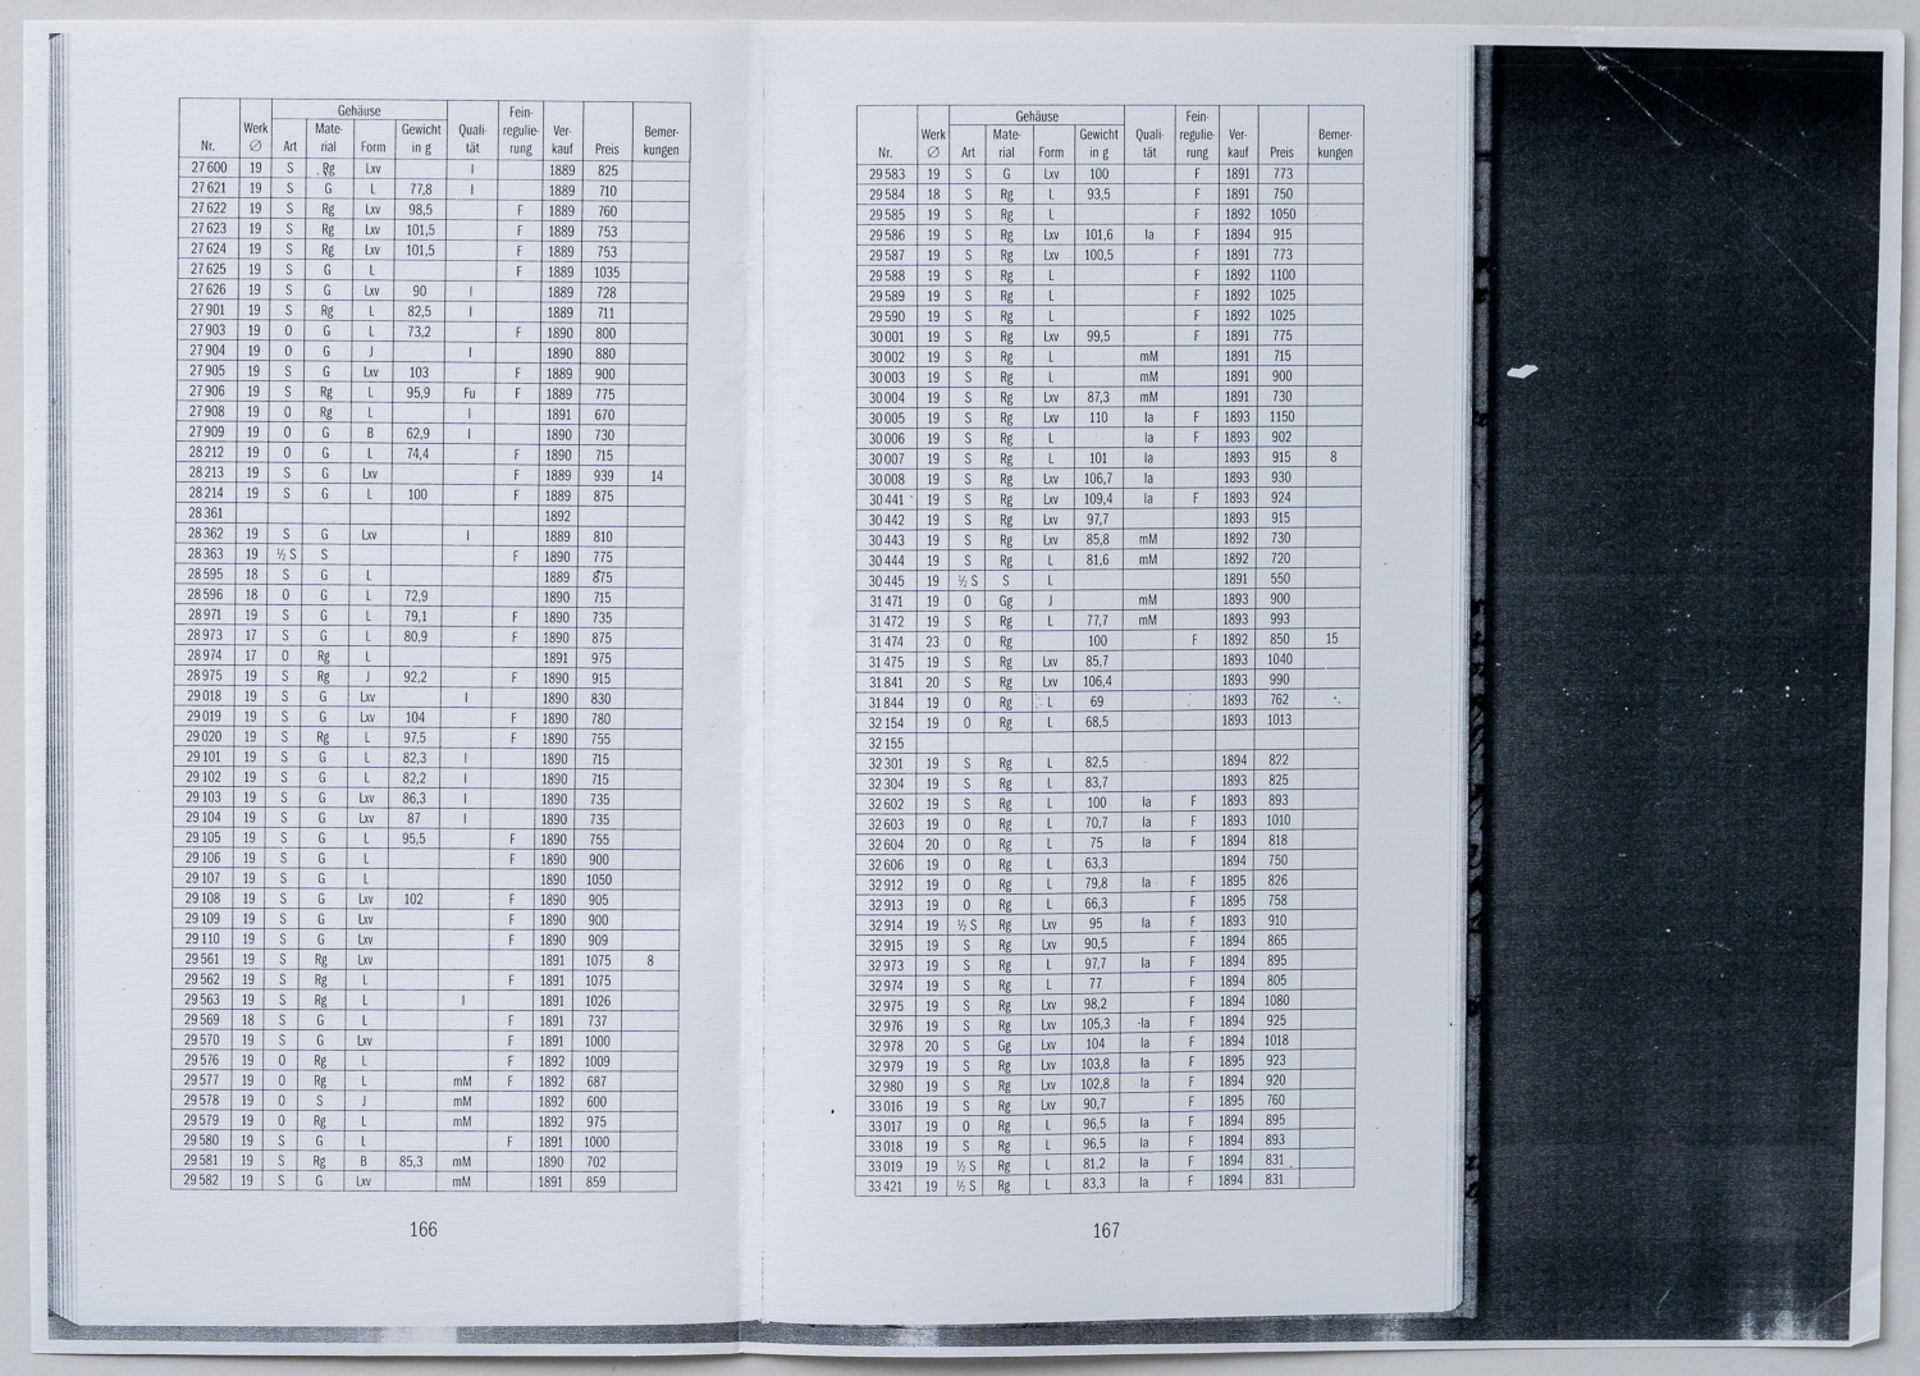 Gehäuse Fein-
Werk Mate- Gewicht Quali- regulie- Ver- Bemer-
Nr. Ø Art rial Form in g tät rung kauf Preis kungen
27 600 19 S Rg Lxv I 1889 825
27 621 19 S G L 77,8 I 1889 710
27 622 19 S Rg Lxv 98,5 F 1889 760
27 623 19 S Rg Lxv 101,5 F 1889 753
27 624 19 S Rg Lxv 101,5 F 1889 753
27 625 19 S G L F 1889 1035
27 626 19 S G Lxv 90 I 1889 728
27 901 19 S Rg L 82,5 I 1889 711
27 903 19 O G L 73,2 F 1890 800
27 904 19 O G J I 1890 880
27 905 19 S G Lxv 103 F 1889 900
27 906 19 S Rg L 95,9 Fu F 1889 775
27 908 19 O Rg L I 1891 670
27 909 19 O G B 62,9 I 1890 730
28 212 19 O G L 74,4 F 1890 715
28 213 19 S G Lxv F 1889 939 14
28 214 19 S G L 100 F 1889 875
28 361 1892
28 362 19 S G Lxv I 1889 810
28 363 19 ½ S S F 1890 775
28 595 18 S G L 1889 875
28 596 18 O G L 72,9 1890 715
28 971 19 S G L 79,1 F 1890 735
28 973 17 S G L 80,9 F 1890 875
28 974 17 O Rg L 1891 975
28 975 19 S Rg J 92,2 F 1890 915
29 018 19 S G Lxv I 1890 830
29 019 19 S G Lxv 104 F 1890 780
29 020 19 S Rg L 97,5 F 1890 755
29 101 19 S G L 82,3 I 1890 715
29 102 19 S G L 82,2 I 1890 715
29 103 19 S G Lxv 86,3 I 1890 735
29 104 19 S G Lxv 87 I 1890 735
29 105 19 S G L 95,5 F 1890 755
29 106 19 S G L F 1890 900
29 107 19 S G L 1890 1050
29 108 19 S G Lxv 102 F 1890 905
29 109 19 S G Lxv F 1890 900
29 110 19 S G Lxv F 1890 909
29 561 19 S Rg Lxv 1891 1075 8
29 562 19 S Rg L F 1891 1075
29 563 19 S Rg L I 1891 1026
29 569 18 S G L F 1891 737
29 570 19 S G Lxv F 1891 1000
29 576 19 O Rg L F 1892 1009
29 577 19 O Rg L mM F 1892 687
29 578 19 O S J mM 1892 600
29 579 19 O Rg L mM 1892 975
29 580 19 S G L F 1891 1000
29 581 19 S Rg B 85,3 mM 1890 702
29 582 19 S G Lxv mM 1891 859
166
Gehäuse Fein-
Werk Mate- Gewicht Quali- regulie- Ver- Bemer-
Nr. Ø Art rial Form in g tät rung kauf Preis kungen
29 583 19 S G Lxv 100 F 1891 773
29 584 18 S Rg L 93,5 F 1891 750
29 585 19 S Rg L F 1892 1050
29 586 19 S Rg Lxv 101,6 Ia F 1894 915
29 587 19 S Rg Lxv 100,5 F 1891 773
29 588 19 S Rg L F 1892 1100
29 589 19 S Rg L F 1892 1025
29 590 19 S Rg L F 1892 1025
30 001 19 S Rg Lxv 99,5 F 1891 775
30 002 19 S Rg L mM 1891 715
30 003 19 S Rg L mM 1891 900
30 004 19 S Rg Lxv 87,3 mM 1891 730
30 005 19 S Rg Lxv 110 Ia F 1893 1150
30 006 19 S Rg L Ia F 1893 902
30 007 19 S Rg L 101 Ia 1893 915 8
30 008 19 S Rg Lxv 106,7 Ia 1893 930
30 441 19 S Rg Lxv 109,4 Ia F 1893 924
30 442 19 S Rg Lxv 97,7 1893 915
30 443 19 S Rg Lxv 85,8 mM 1892 730
30 444 19 S Rg L 81,6 mM 1892 720
30 445 19 ½ S S L 1891 550
31 471 19 O Gg J mM 1893 900
31 472 19 S Rg L 77,7 mM 1893 993
31 474 23 O Rg 100 F 1892 850 15
31 475 19 S Rg Lxv 85,7 1893 1040
31 841 20 S Rg Lxv 106,4 1893 990
31 844 19 O Rg L 69 1893 762
32 154 19 O Rg L 68,5 1893 1013
32 155
32 301 19 S Rg L 82,5 1894 822
32 304 19 S Rg L 83,7 1893 825
32 602 19 S Rg L 100 Ia F 1893 893
32 603 19 O Rg L 70,7 Ia F 1893 1010
32 604 20 O Rg L 75 Ia F 1894 818
32 606 19 O Rg L 63,3 1894 750
32 912 19 O Rg L 79,8 Ia F 1895 826
32 913 19 O Rg L 66,3 F 1895 758
32 914 19 ½ S Rg Lxv 95 Ia F 1893 910
32 915 19 S Rg Lxv 90,5 F 1894 865
32 973 19 S Rg L 97,7 Ia F 1894 895
32 974 19 S Rg L 77 F 1894 805
32 975 19 S Rg Lxv 98,2 F 1894 1080
32 976 19 S Rg Lxv 105,3 Ia F 1894 925
32 978 20 S Gg Lxv 104 Ia F 1894 1018
32 979 19 S Rg Lxv 103,8 Ia F 1895 923
32 980 19 S Rg Lxv 102,8 Ia F 1894 920
33 016 19 S Rg Lxv 90,7 F 1895 760
33 017 19 O Rg L 96,5 Ia F 1894 895
33 018 19 S Rg L 96,5 Ia F 1894 893
33 019 19 ½ S Rg L 81,2 Ia F 1894 831
33 421 19 ½ S Rg L 83,3 Ia F 1894 831
167